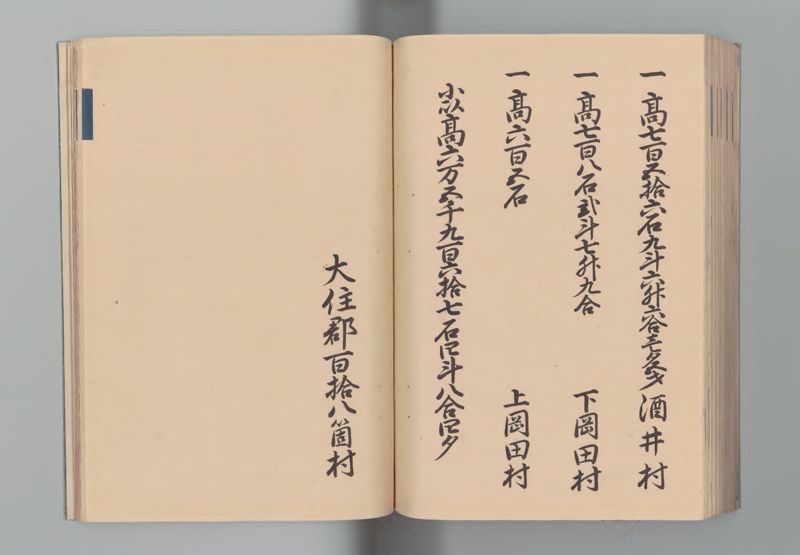 一高七百五拾六石九斗六升六合壱夕八才 酒井村
一高七百八石弐斗七升九合 下岡田村
一高六百五石 上岡田村
小以高六万五千九百六拾七石四斗八合四夕
大住郡百拾八箇村